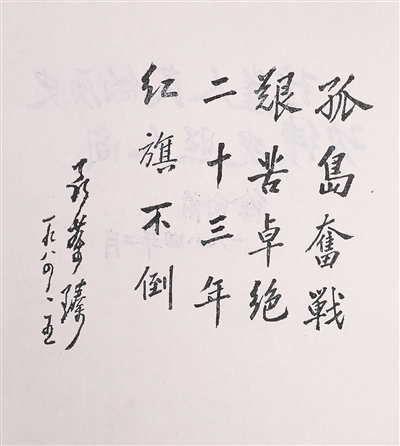 孤島奮戦
艱苦卓绝
二十三年
红旗不倒
聂荣臻
一九八四